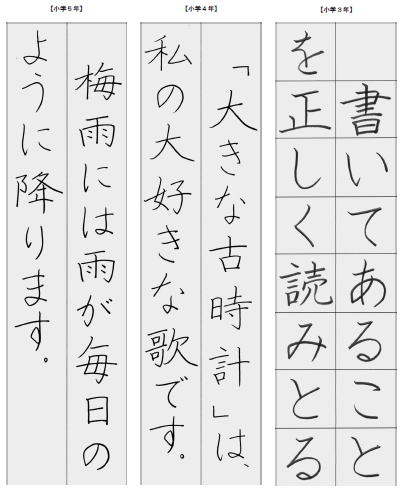 【小学５年】
【小学４年】
【小学３年】
書いてあること
を正しく読みとる
「大きな古時計」は、
私の大好きな歌です。
梅雨には雨が毎日の
ように降ります。